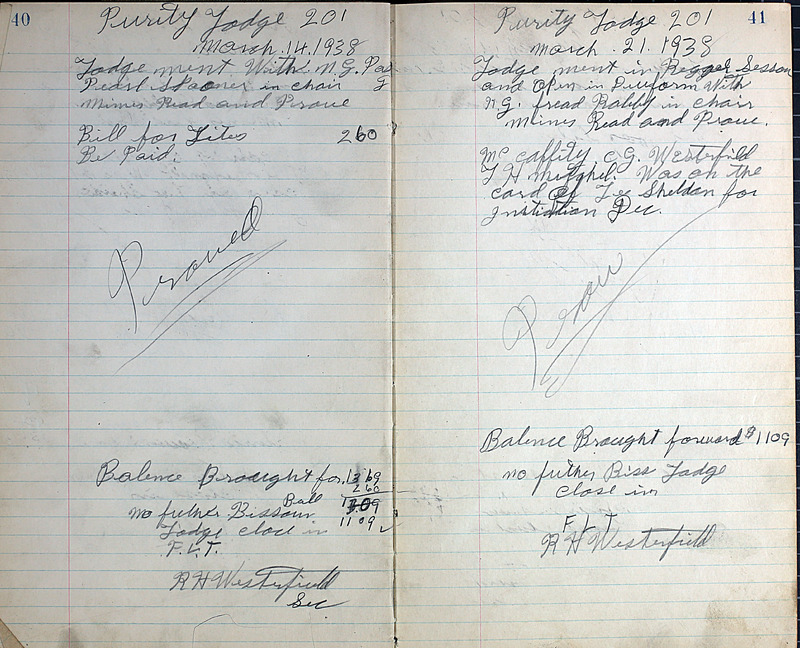 40
Purity Lodge 201
March. 14. 1938
Lodge ment. With N.G. Pas
Pearl in chair
Mines Read and Prove
Bill for Lites 2 60
Be Paid.
Proved
Balence Brought for. 13 69
2 60
Ball
no futher Bissoun 11 09
Lodge close in
F. L. T.
R H Westerfield
Sec
41
Purity Lodge 201
March. 21. 1938
Lodge ment in Regger Sesson
and open in Dueform With
N.G. fread Rabby in chair
Mines Read and Prove.
Mc Caffity C.G. Westerfield
J H Mitchel. Was on the
card of Lee Sheldon for
Dec.
Prov
Balence Brought forward $ 11 09
no futher Biss Lodge
close in
F. L. T
R H Westerfield